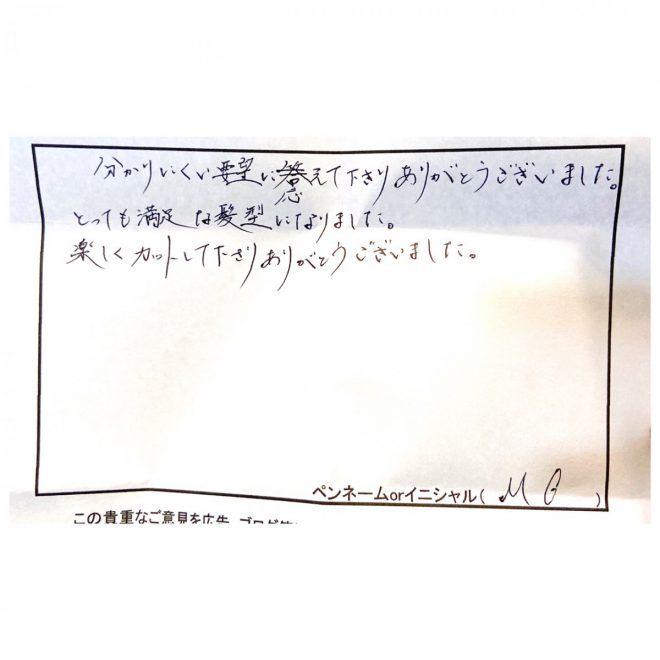 分かりにくい要望に応えて下さりありがとうございました。
とっても満足な髪型になりました。
楽しくカットして下さりありがとうございました。
ペンネームorイニシャル( M )
この貴重なご意見を広告、ブログ